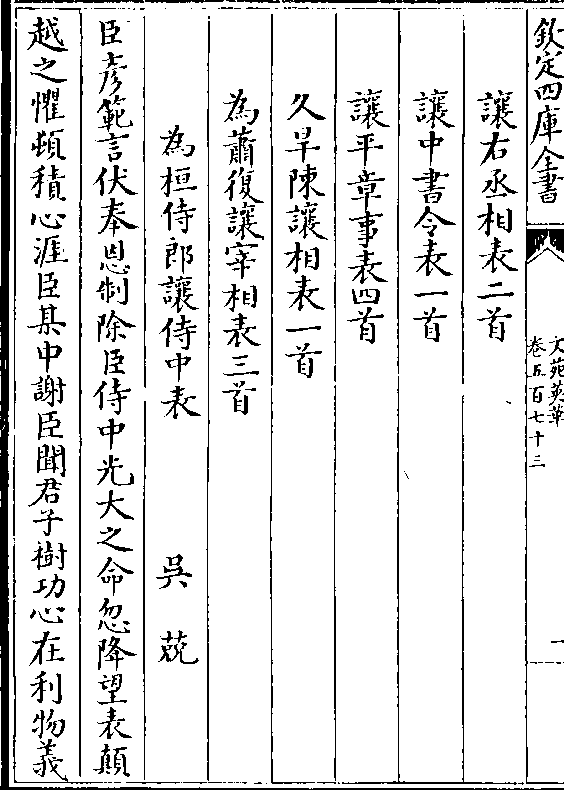 欽定四庫全書
文苑英華
卷五百七十三
一
讓右丞相表二首
讓中書令表一首
讓平章事表四首
久旱陳讓相表一首
為蕭復讓宰相表三首
為桓侍郎讓侍中表 吳兢
臣彥範言伏奉恩制除臣侍中光大之命忽降望表顛
越之懼頓積心涯臣某中謝臣聞君子樹功心在利物義